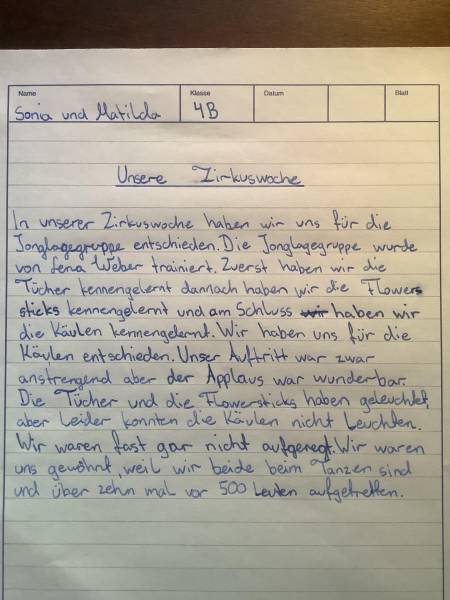 Name
Klasse
Datum
Blatt
Sonia und Matilda
4B
Unsere Zirkuswoche
In unserer Zirkuswoche haben wir uns für die
Jonglagegruppe entschieden. Die Jonglagegruppe wurde
von Lena Weber trainiert. Zuerst haben wir die
Tücher kennengelernt dannach haben wir die Flower
sticks kennengelernt und am Schluss wir haben wir
die Käulen kennengelernt. Wir haben uns für die
Käulen entschieden. Unser Auftritt war zwar
anstrengend aber der Applaus war wunderbar.
Die Tücher und die Flowersticks haben geleuchtet,
aber Leider konnten die Käulen nicht Leuchten.
Wir waren fast gar nicht aufgeregt. Wir waren
uns gewöhnt, weil wir beide beim Tanzen sind
und über zehn mal vor 500 Leuten aufgetretten.